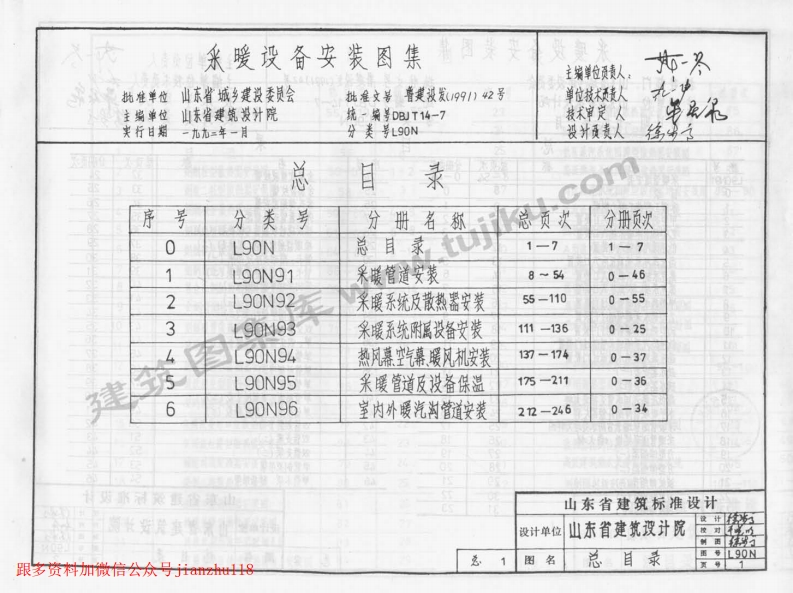 采暖设备安装图集
批准单位 山东省城乡建设委员会 批准文号 鲁建设发(1991)42号
主编单位 山东省建筑设计院 统一编号 DBJT14-7
实行日期 一九九二年一月 分类号 L90N
主编单位负责人:
单位技术负责人
技术审定人
设计负责人
总目录
序号 分类号 分册名称 总页次 分册页次
0 L90N 总目录 1—7 1—7
1 L90N91 采暖管道安装 8~54 0—46
2 L90N92 采暖系统及散热器安装 55—110 0—55
3 L90N93 采暖系统附属设备安装 111—136 0—25
4 L90N94 热风幕、空气幕、暖风机安装 137—174 0—37
5 L90N95 采暖管道及设备保温 175—211 0—36
6 L90N96 室内外暖汽沟管道安装 212—246 0—34
建筑图集库 www.tujiku.com
山东省建筑标准设计
设计单位 山东省建筑设计院 设计
校对
制图
总 1 图名 总目录 图号 L90N
页号 1
跟多资料加微信公众号jianzhu118